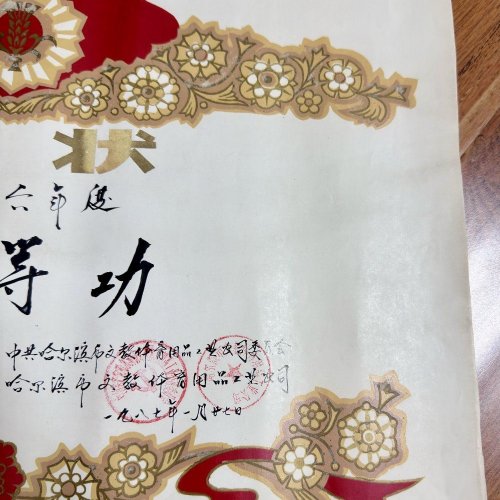 状
六年度
等功
中共哈尔滨市文教体育用品工业公司委员会
哈尔滨市文教体育用品工业公司
一九八七年一月廿七日